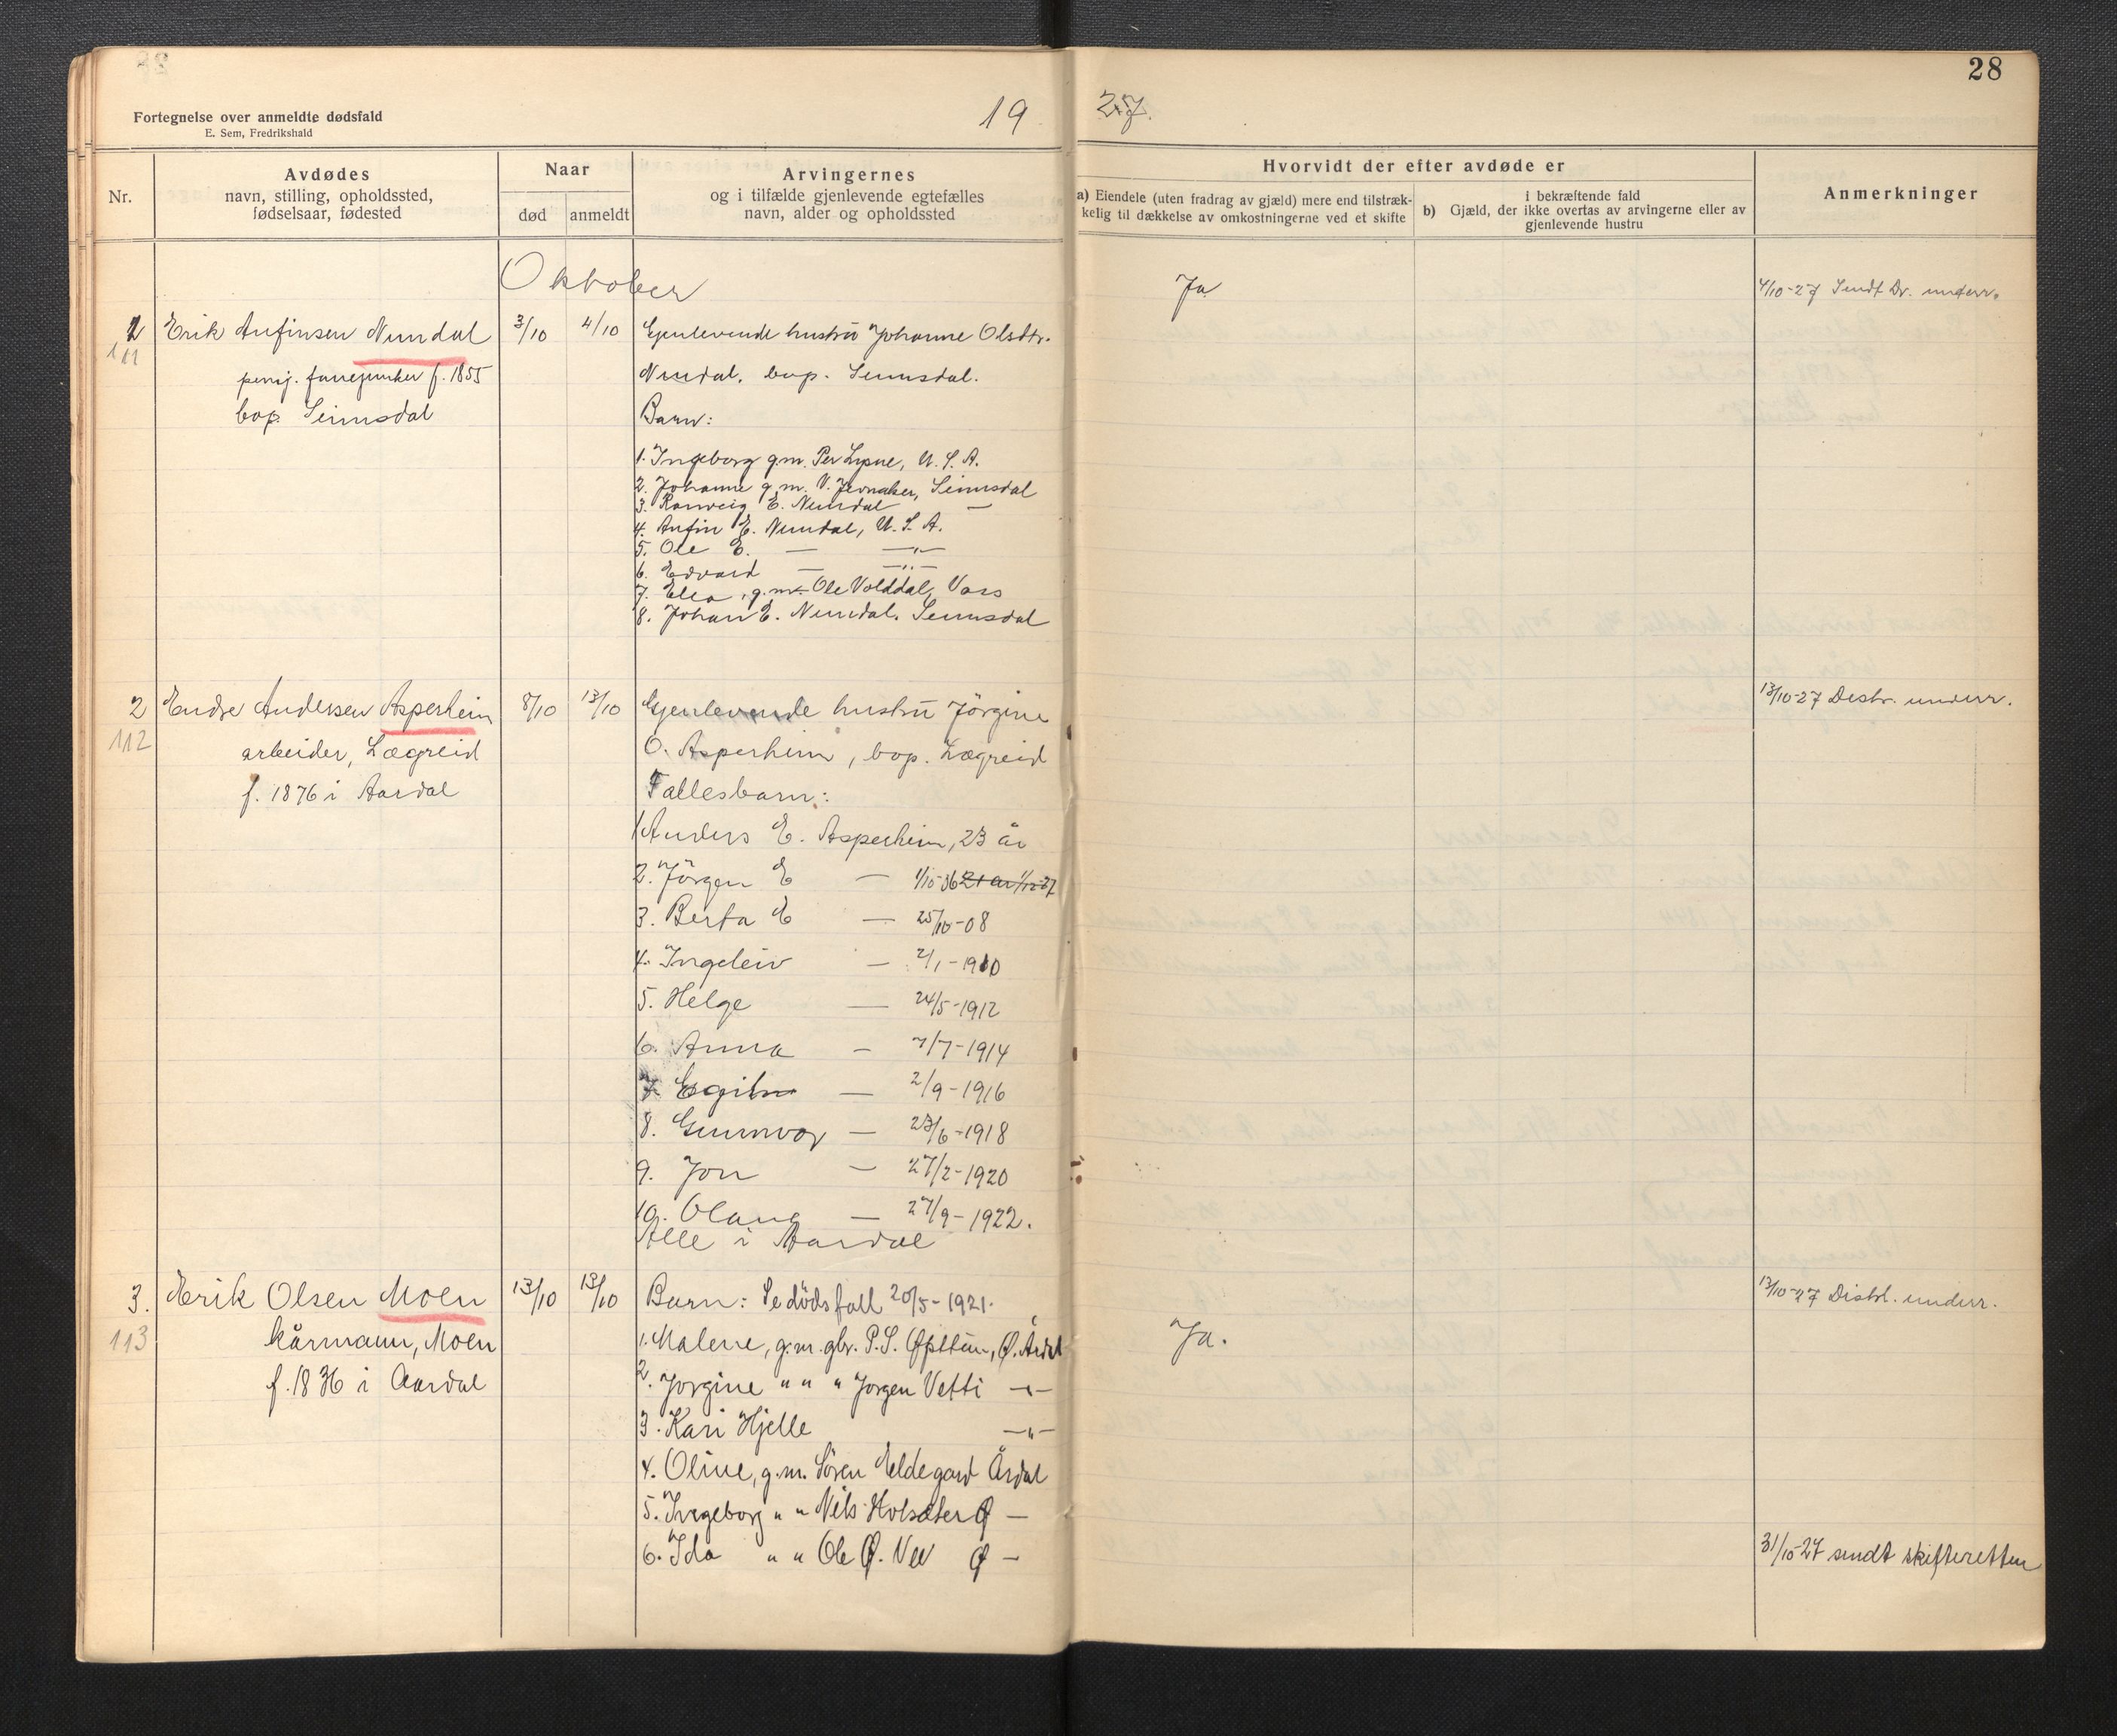 28
Fortegnelse over anmeldte dødsfald
E. Sem, Fredrikshald
19
27.
Nr.
Avdødes
navn, stilling, opholdssted,
fødselsaar, fødested
Naar
død
anmeldt
Arvingernes
og i tilfælde gjenlevende egtefælles
navn, alder og opholdssted
Hvorvidt der efter avdøde er
a) Eiendele (uten fradrag av gjæld) mere end tilstræk-
kelig til dækkelse av omkostningerne ved et skifte
i bekræftende fald
b) Gjæld, der ikke overtas av arvingerne eller av
gjenlevende hustru
Anmerkninger
Oktober
1
111
Erik Anfinsen Nundal
pensj. fanejunker f. 1855
bop. Seimsdal
3/10
4/10
Gjenlevende hustru Johanne Olsdtr.
Nundal, bop. Seimsdal.
Barn:
1. Ingeborg g.m. Per Lysne, U.S.A.
2. Johanne g.m. V. Jevnaker, Seimsdal
3. Ranveig E. Nundal —
4. Anfin E. Nundal, U.S.A.
5. Ole E. — —"—
6. Edvard — —"—
7. Elea, g.m. Ole Volddal, Vors
8. Johan E. Nundal, Seimsdal
Ja
4/10-27 Sendt Dr. underr.
2
112
Endre Andersen Asperheim
arbeider, Lægreid
f. 1876 i Aardal
8/10
13/10
Gjenlevende hustru Jörgine
O. Asperheim, bop. Lægreid
Fallesbarn:
1 Anders E. Asperheim, 23 år
2. Jörgen E — 1/10-06 21 år 1/10-27
3. Berta E — 25/10-08
4. Ingeleiv — 2/1-1910
5. Helge — 24/5-1912
6. Anna — 7/7-1914
7 Egil — 2/9-1916
8. Gunnvor — 23/6-1918
9. Jon — 27/2-1920
10. Olaug — 27/9-1922.
Alle i Aardal
13/10-27 Distr. underr.
3.
113
Erik Olsen Moen
kårmann, Moen
f. 1836 i Aardal
13/10
13/10
Barn: Se dödsfall 20/5-1921.
1. Malene, g.m. gbr. P.S. Øpttun, Ø. Årdal
2. Jorgine " " " Jorgen Vetti —"—
3. Kari Hjelle —"—
4. Oline, g.m. Sören Eldegard Årdal
5. Ingeborg " " Nils Holsæter Ø —
6. Ida " " Ole Ø. Vee Ø —
Ja.
13/10-27 Distr. underr.
31/10-27 sendt skifteretten